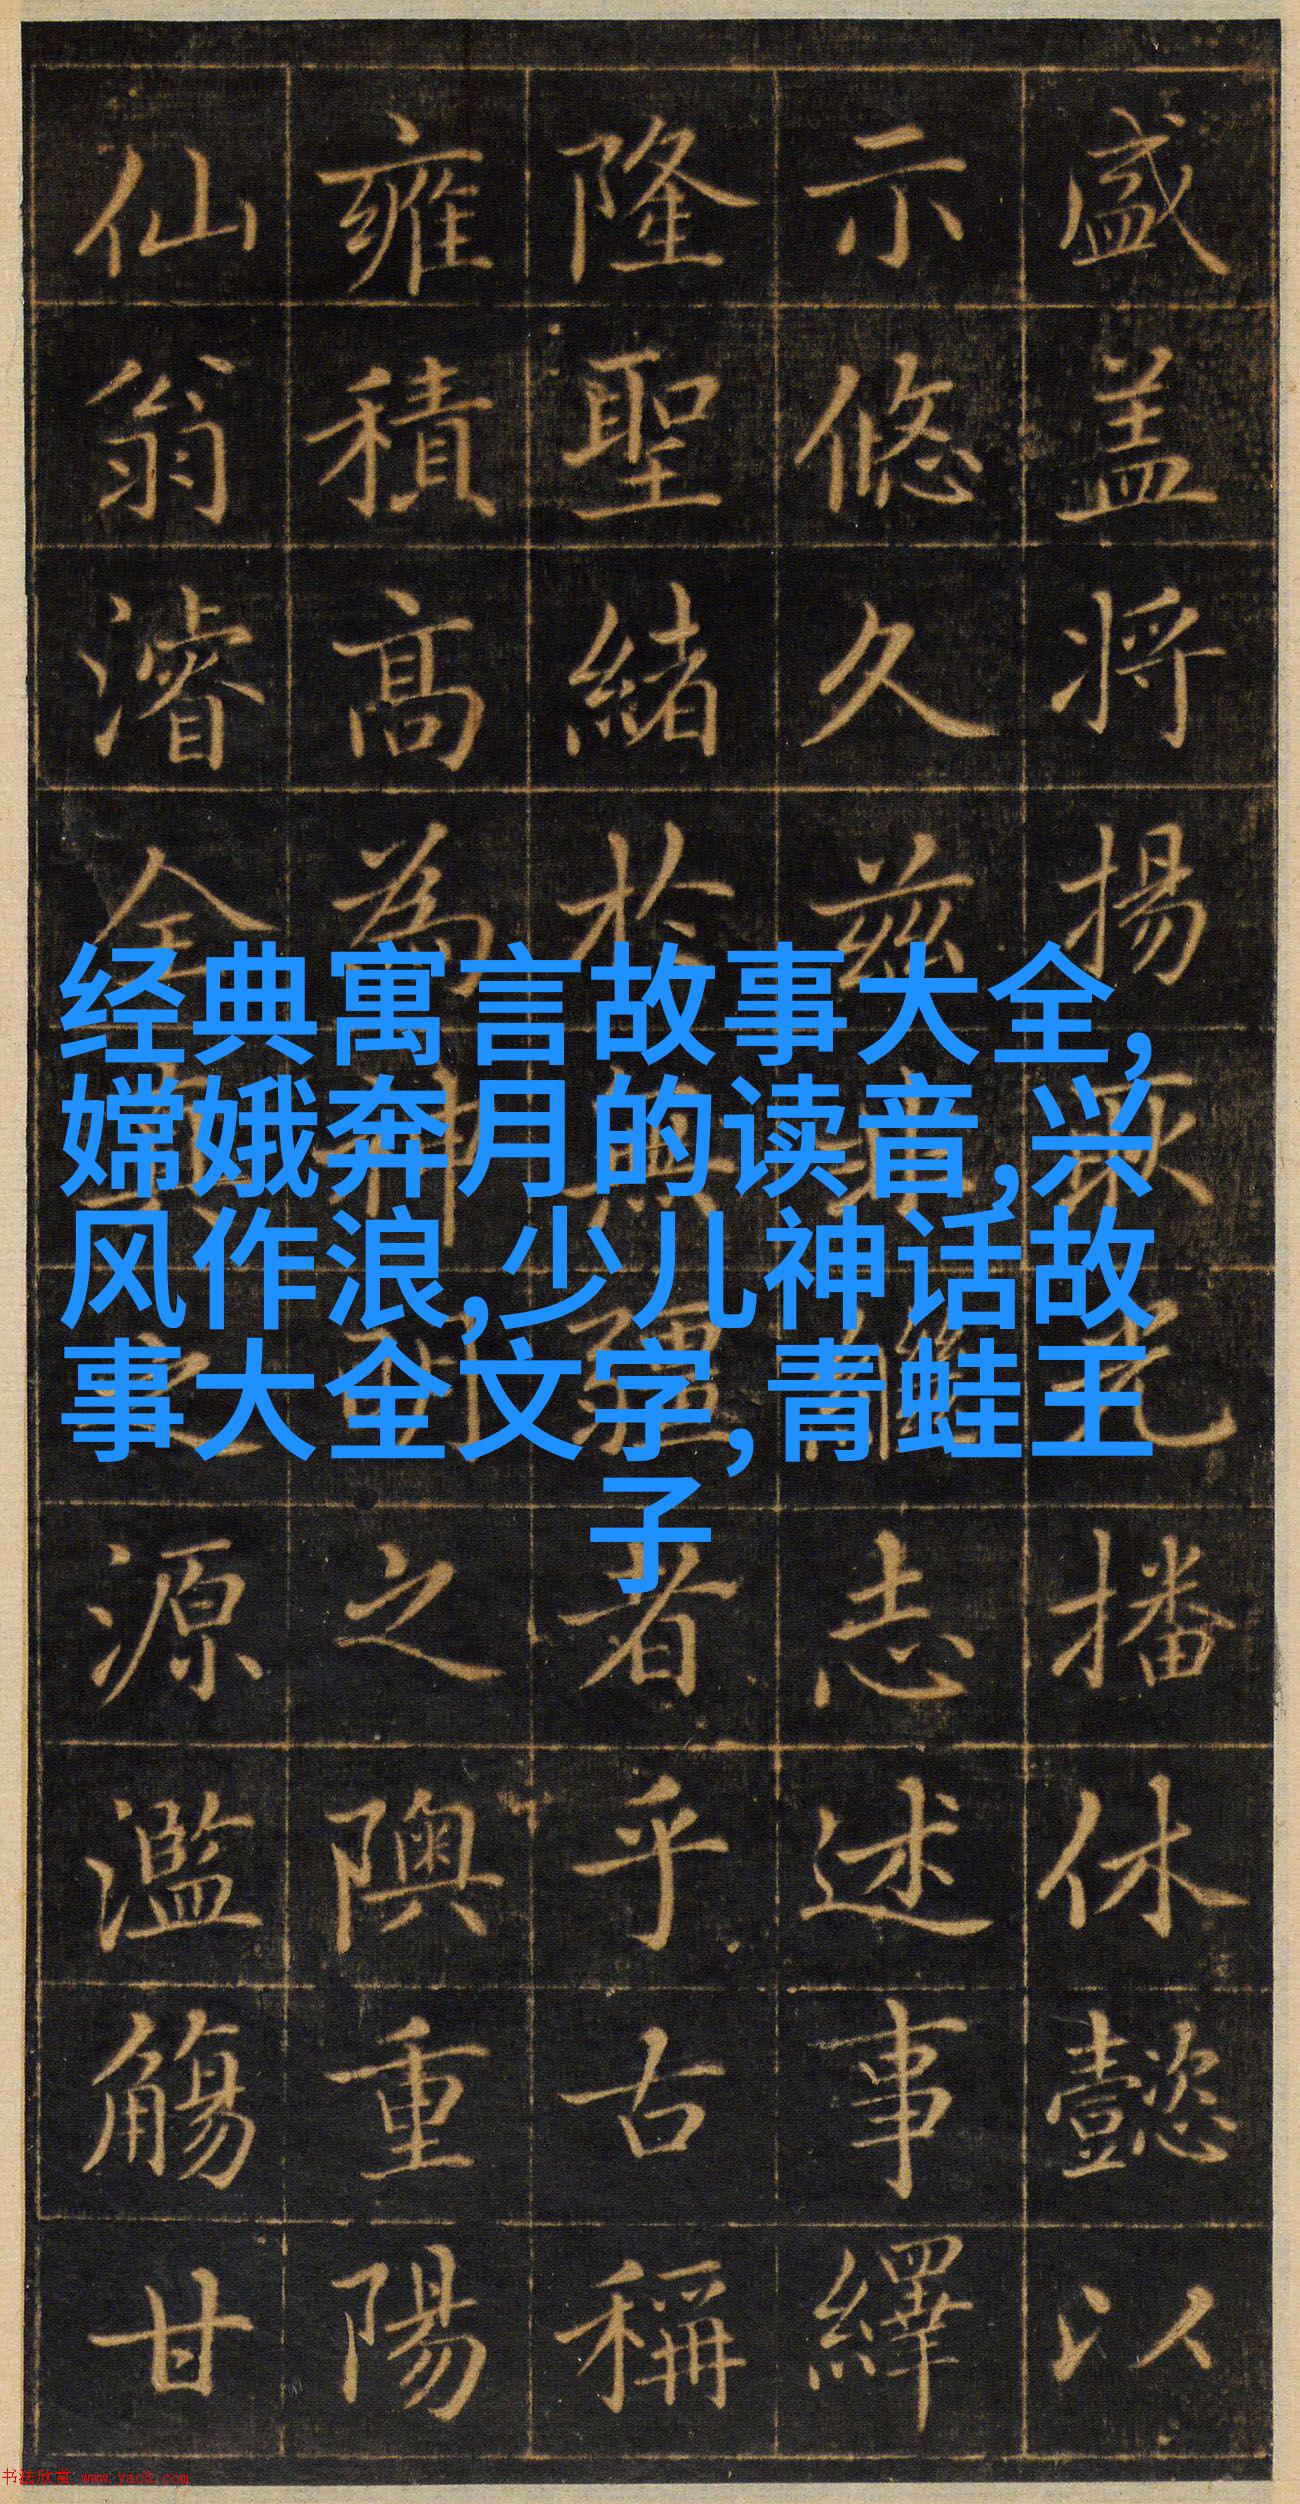 经典寓言故事大全,
嫦娥奔月的读音,兴
风作浪,少儿神话故
事大全文字,青蛙王
子
盛盖将揚厥光播休懿以
示悠久兹繼志述事繹
隆聖緒於無疆者乎古稱
雍積高為神明之隩重陽
仙翁濬全真之源濫觴甘
书法欣赏 www.yac8.com